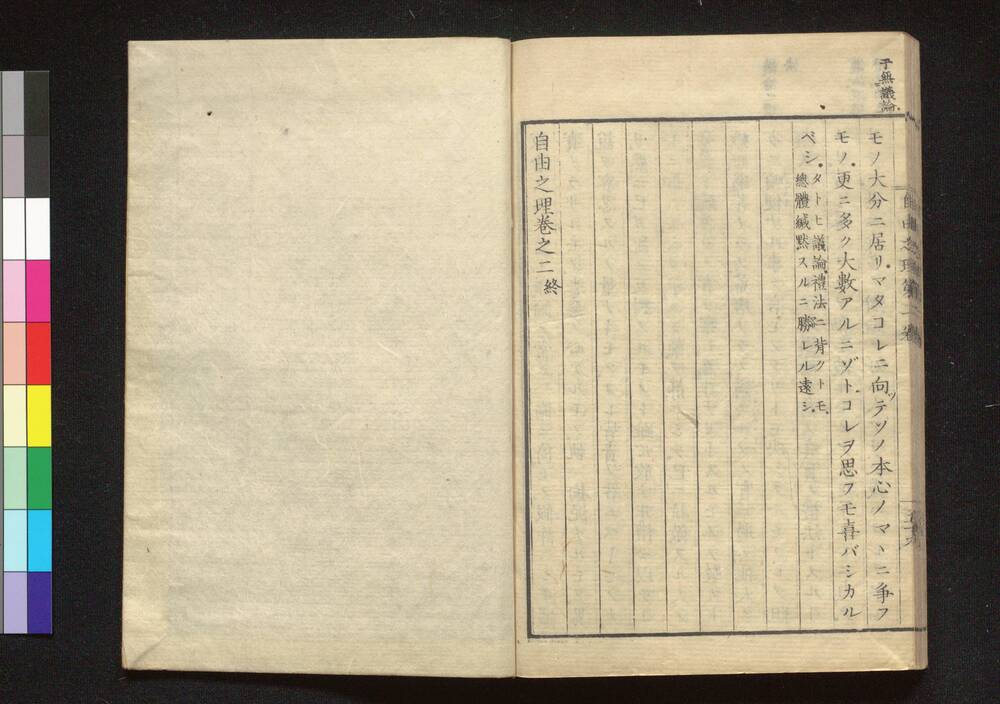 于無議論
モノ大分ニ居リ、マタコレニ向ッテソノ本心ノマヽニ爭フ
モノ、更ニ多ク大數アルニゾト、コレヲ思フモ喜バシカル
ベシ、タトヒ議論、禮法ニ背クトモ、
總體緘黙スルニ勝レル遠シ、
自由之理巻之二終
自由之理第二巻